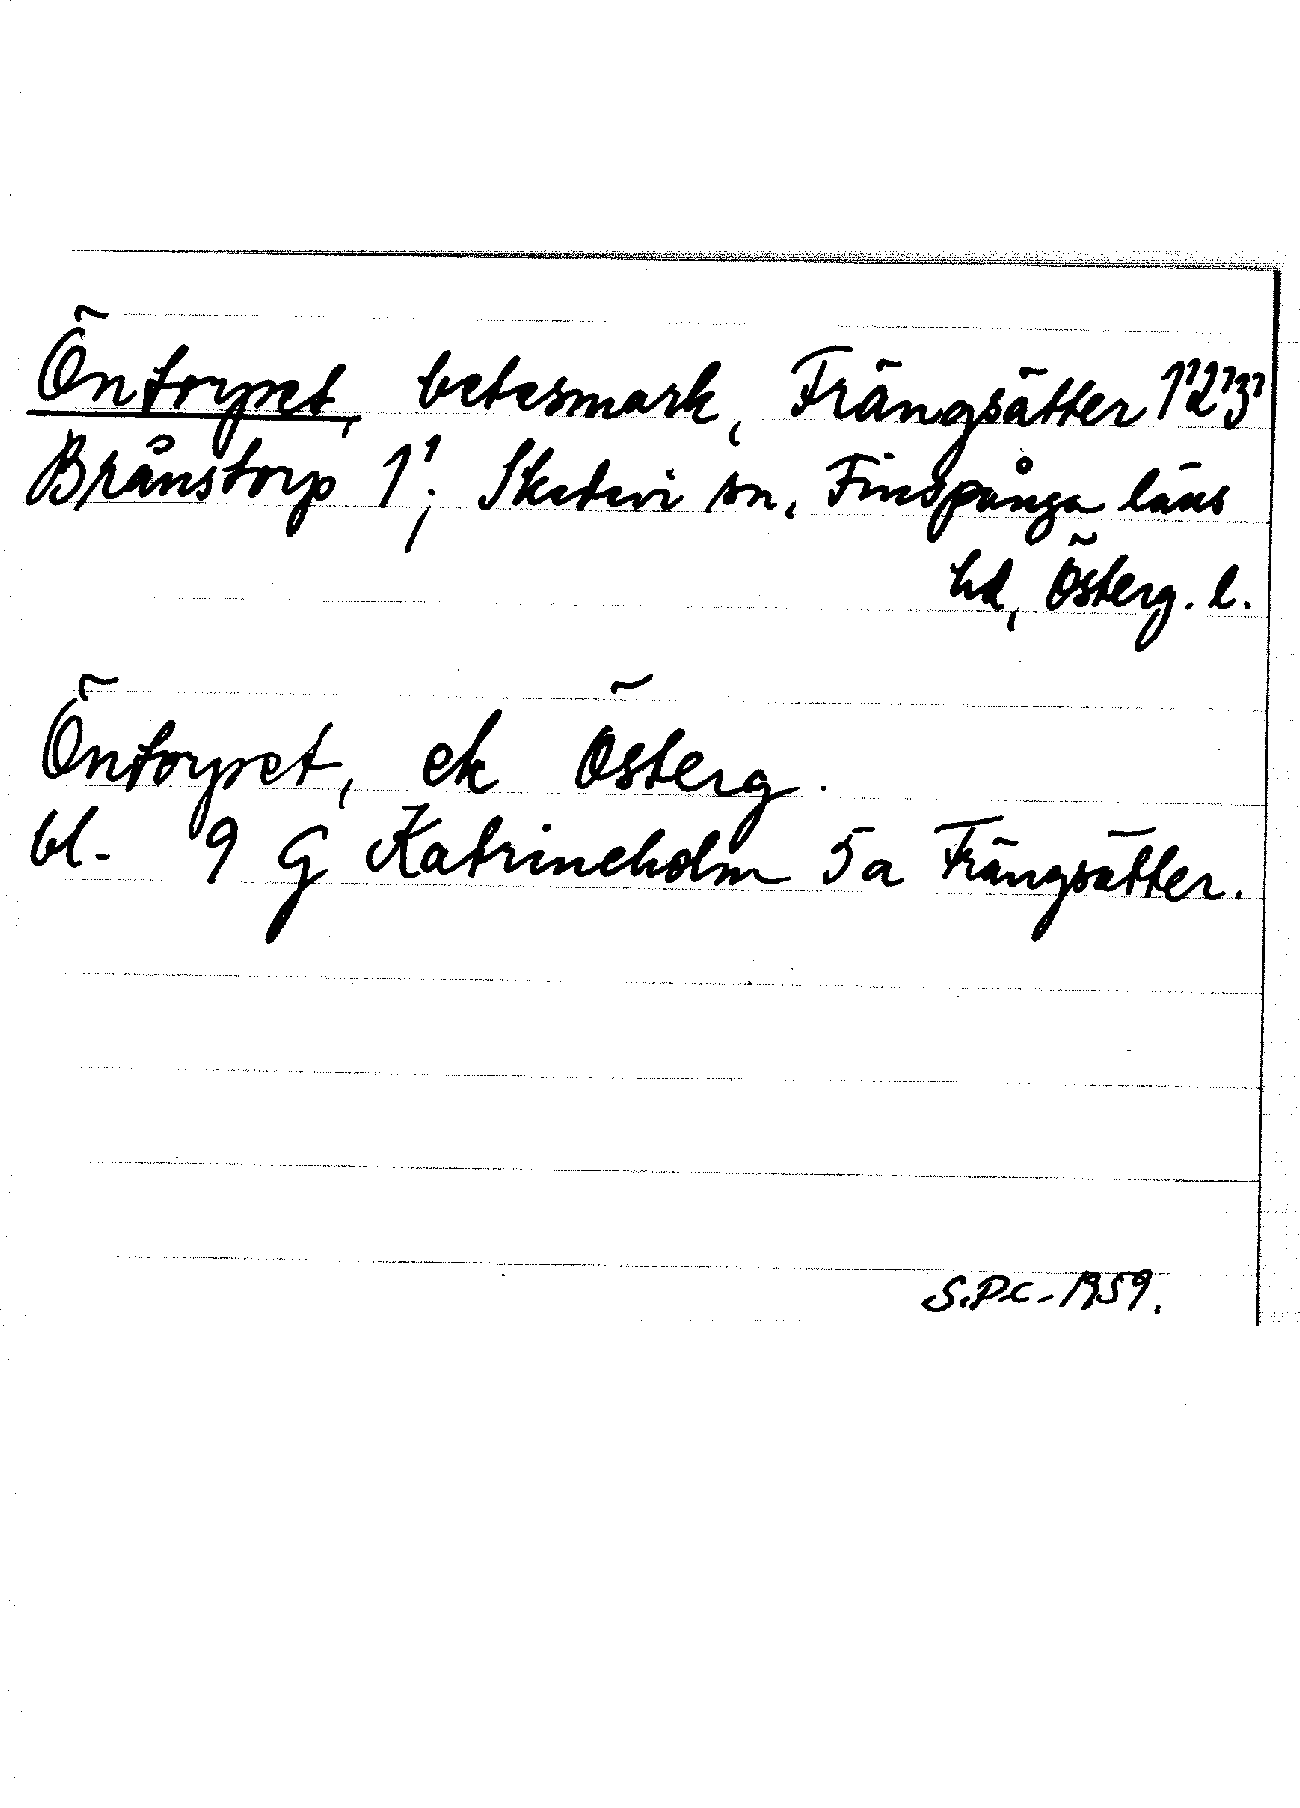 Öntorpet, betesmark, Frängsätter 1¹2¹3¹
Brånstorp 1¹, Skedevi sn, Finspånga läns
hd, Österg. l.
Öntorpet, ek Österg.
bl. 9 G Katrineholm 5a Frängsätter.
S.P.C. - 1959.